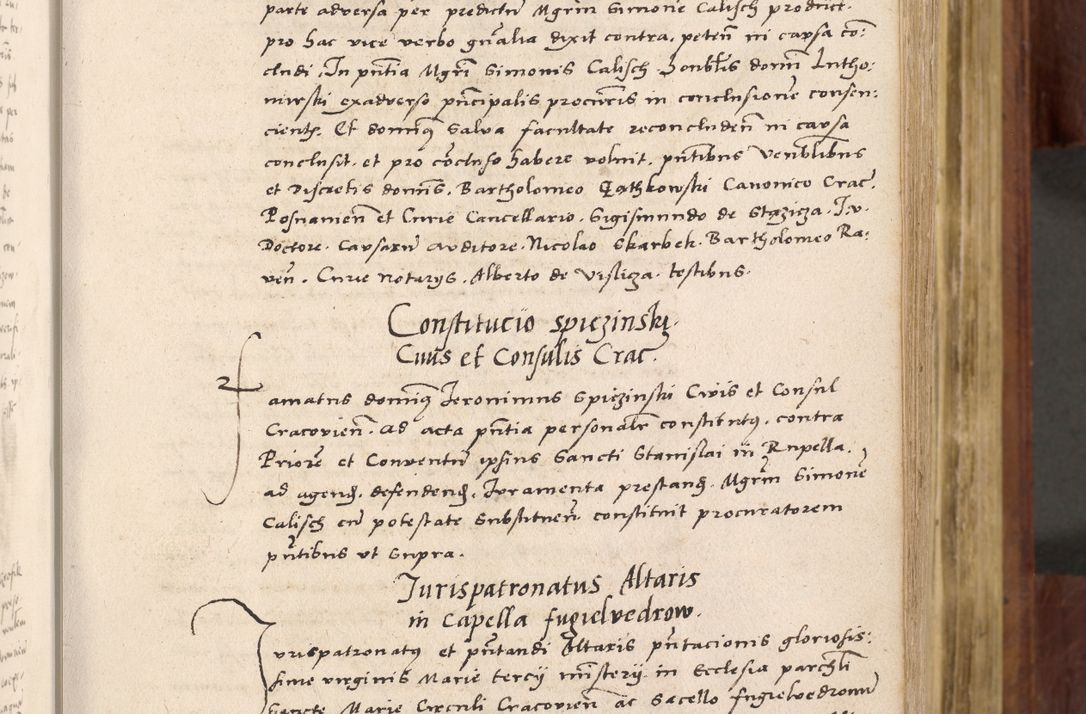 parte adversa per predictũ Mgrm̃ Simonẽ Calisch product.
pro hac vice verbo gñalia dixit contra, petẽn in causa co:
cludi, In pñtia Mgrĩ Simonis Calisch honblĩs domĩ Antho:
niewski exadverso pñcipalis procurĩs in conclusione consen:
cientꝭ. Et domĩnꝰ salva facultate reconcludeñ in causa
conclusit, et pro cõcluso habere voluit, pñtibus Venblĩbus
et Discretis domĩs. Bartholomeo Gąthkowski Canonico Crac̃.
Posnanieñ et Curie Cancellario. Sigismundo de Stęzicza. J.v.
Doctore. Causarũ auditore. Nicolao Skarbek. Bartholomeo Ra:
veñ. Curie notarijs. Alberto de Vislicza. testibus.
Constitucio spiczinskj.
Civis et Consulis Crac̃.
Famatus domĩnꝰ Jeronimus Spiczinski Civis et Consul
Cracovieñ. ad acta pñtia personalr̃ constitutꝰ, contra
Priorẽ et Conventũ ipsius Sancti Stanislai in Rupella,
ad agendꝭ, defendendꝭ, Juramenta prestandꝭ. Mgrm̃ Simonẽ
Calisch cũ potestate substitueñ. constituit procuratorem
pñtibus ut supra.
Jurispatronatus Altaris
in Capella fugielvedrow.
Jurispatronatꝰ et pñtandi Altaris pñtacionis gloriosis:
sime virginis Marie tercij miñsterij in Ecclesia parchlĩ
sancte Marie Circuli Cracovieñ ac Sacello fugielvedrow